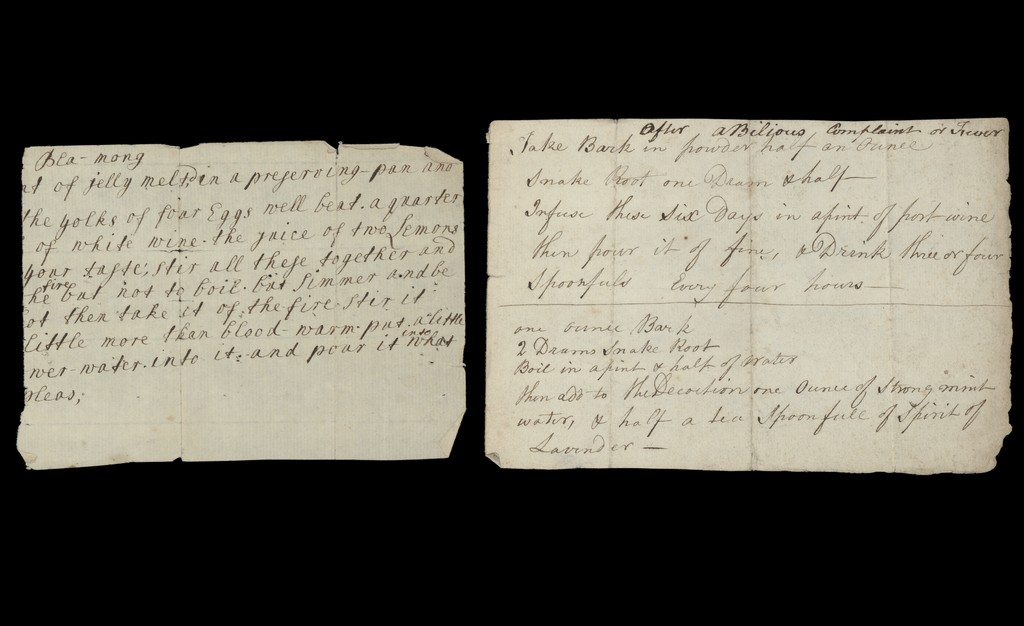 Bla-mong
at of jelly melted in a preserving-pan and
the yolks of four Eggs well beat. a quarter
of white wine. the juice of two Lemons
your taste, stir all these together and
fire
he but not to boil. but simmer and be
ot then take it of the-fire stir it
little more than blood-warm. put. a little
wer-water. into it: and pour it into what
pleas;
After a Bilious Complaint or Fever
Take Bark in powder half an Ounce
Snake Root one Dram & half
Infuse these six Days in a pint of port wine
then pour it of fine, & Drink three or four
Spoonfuls Every four hours —
one ounce Bark
2 Drams Snake Root
Boil in a pint & half of Water
then add to the Decoction one Ounce of Strong mint
water, & half a tea Spoonfull of Spirit of
Lavinder —